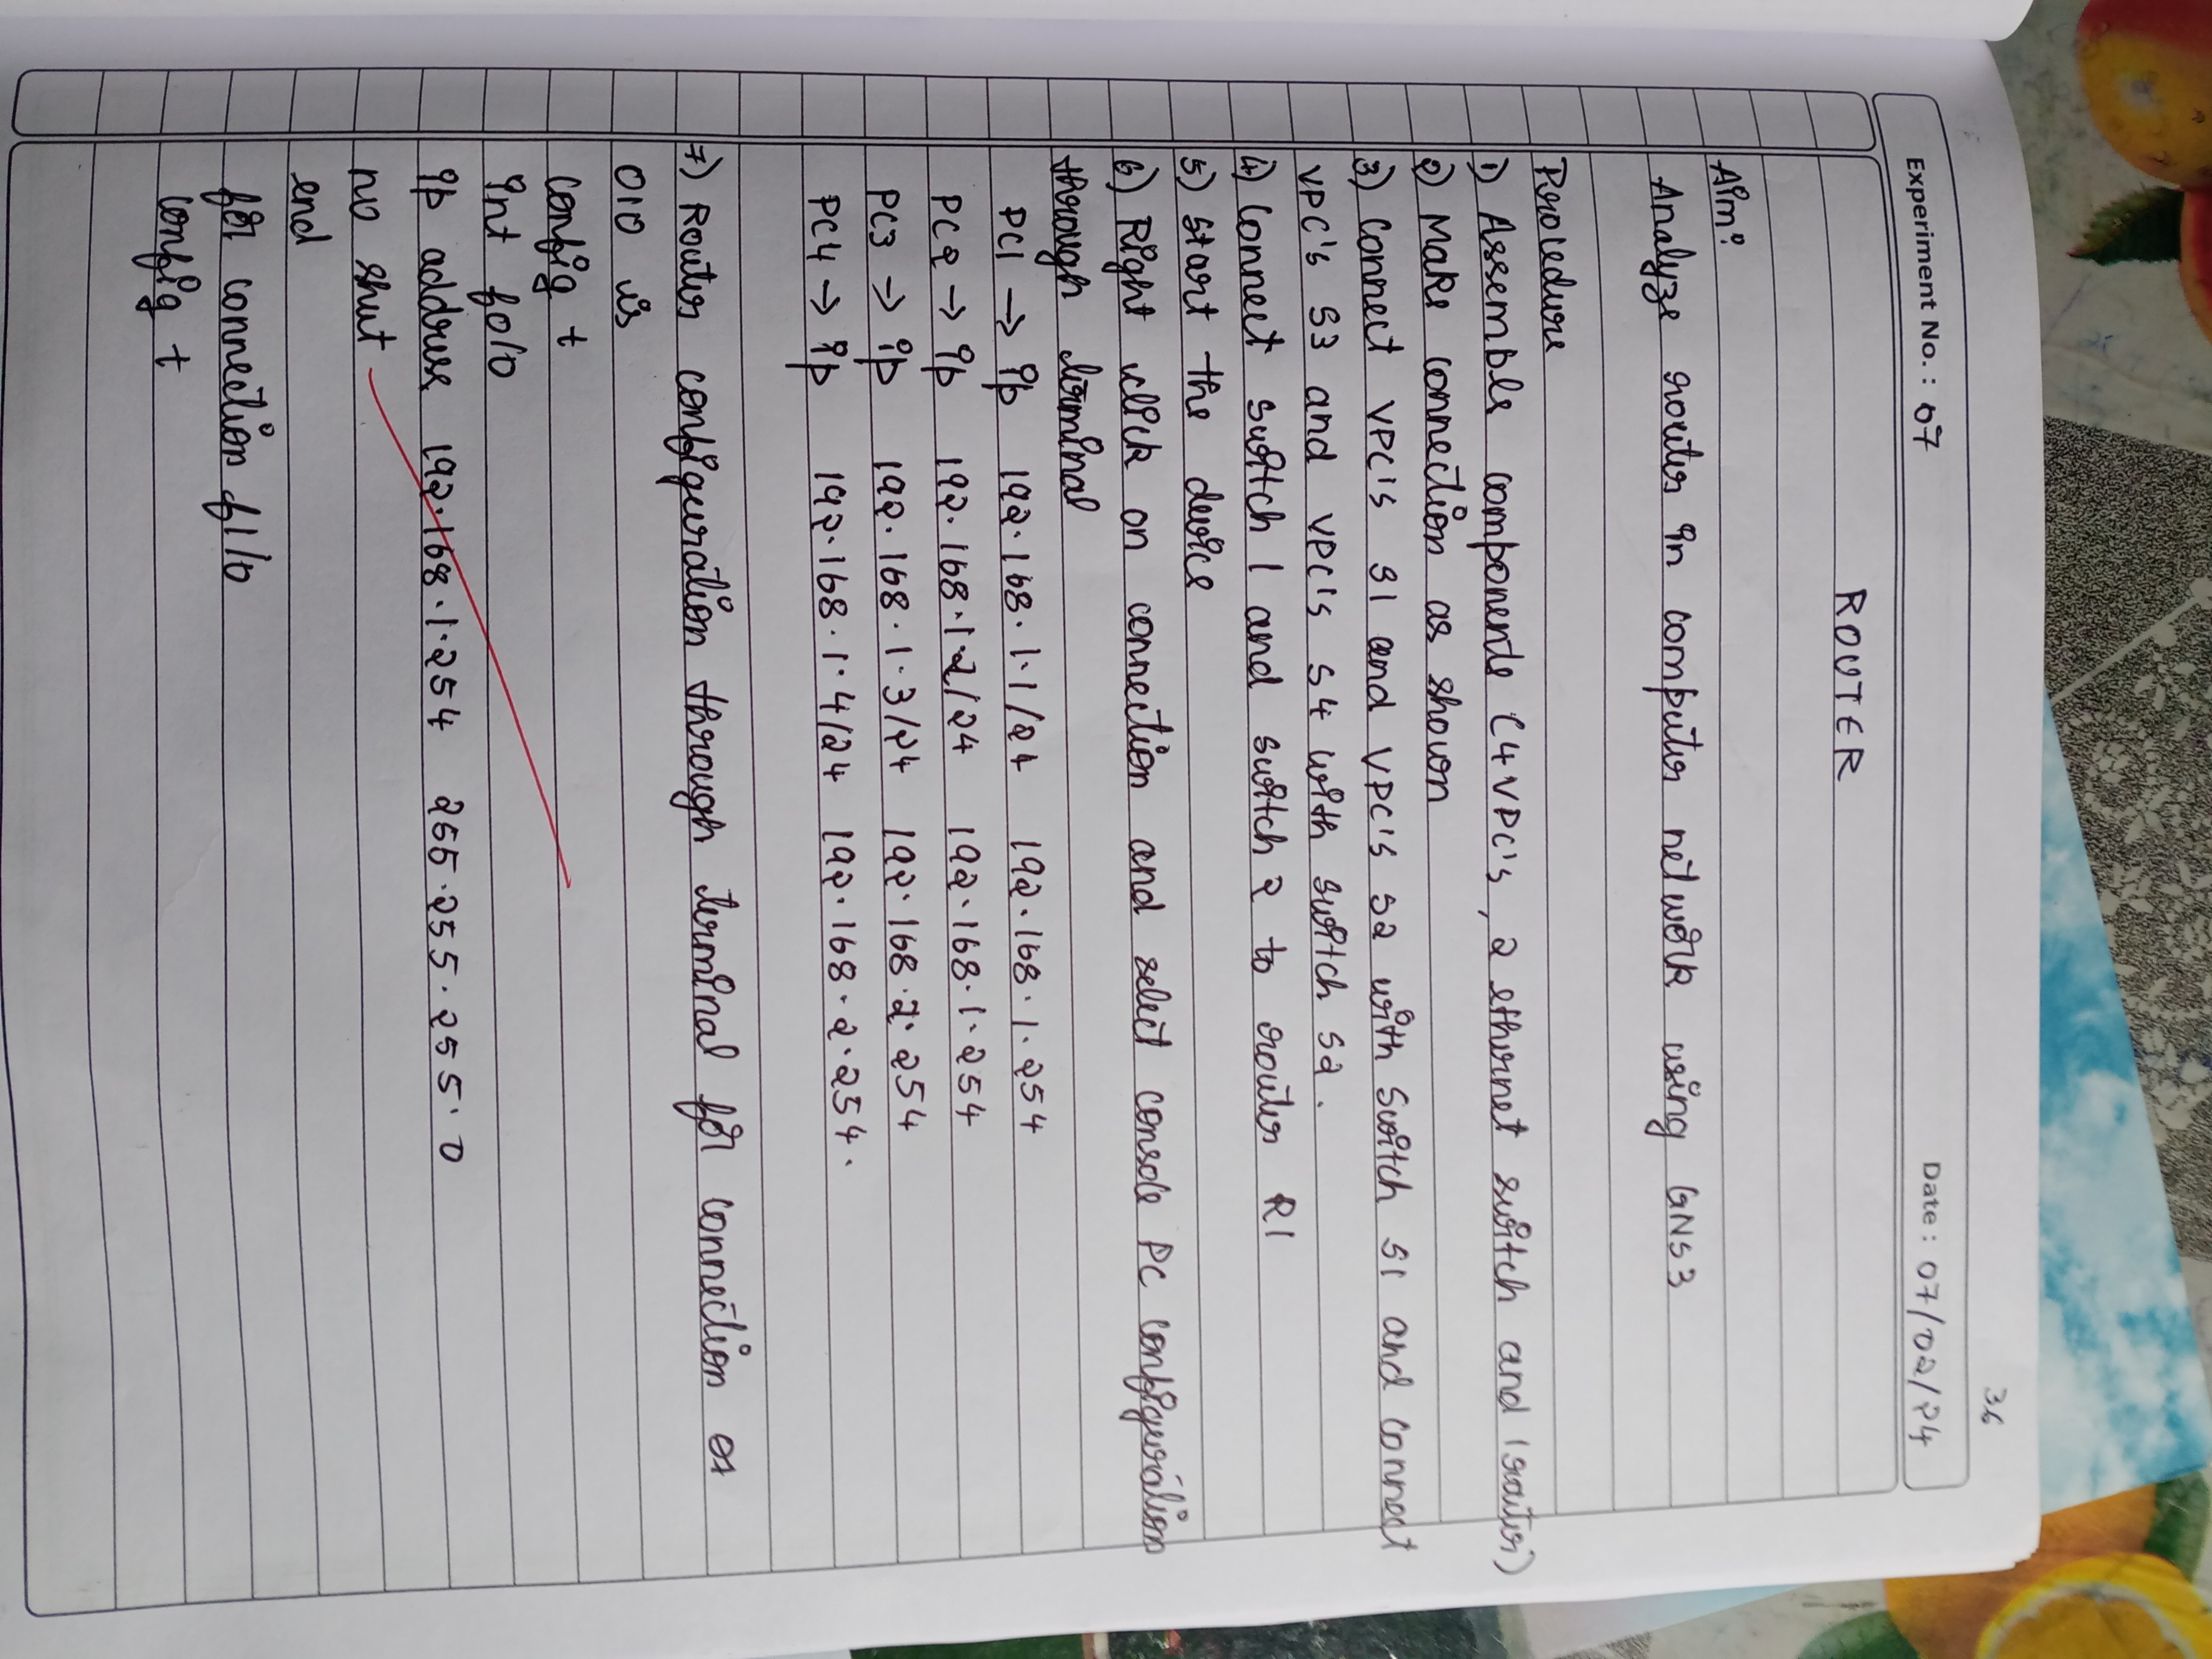 36
Experiment No. : 07 Date : 07/02/24
ROUTER
Aim:
Analyze router in computer network using GNS3
Procedure
1) Assemble components (4 VPC's, 2 ethernet switch and 1 router)
2) Make connection as shown
3) Connect VPC's S1 and VPC's S2 with switch S1 and connect
VPC's S3 and VPC's S4 with switch S2.
4) Connect switch 1 and switch 2 to router R1
5) Start the device
6) Right click on connection and select console PC configuration
through terminal
PC1 → ip 192.168.1.1/24 192.168.1.254
PC2 → ip 192.168.1.2/24 192.168.1.254
PC3 → ip 192.168.1.3/24 192.168.2.254
PC4 → ip 192.168.1.4/24 192.168.2.254.
7) Router configuration through terminal for connection
010 is
config t
int f0/0
ip address 192.168.1.254 255.255.255.0
no shut
end
for connection f1/0
config t